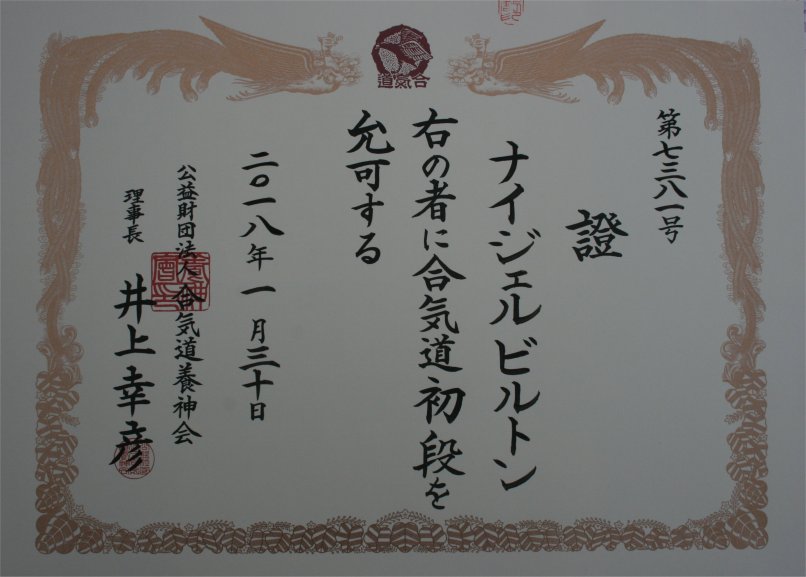 合氣道
第七三八一号
證
ナイジェルビルトン
右の者に合気道初段を
允可する
二〇一八年一月三十日
公益財団法人合気道養神会
理事長 井上幸彦